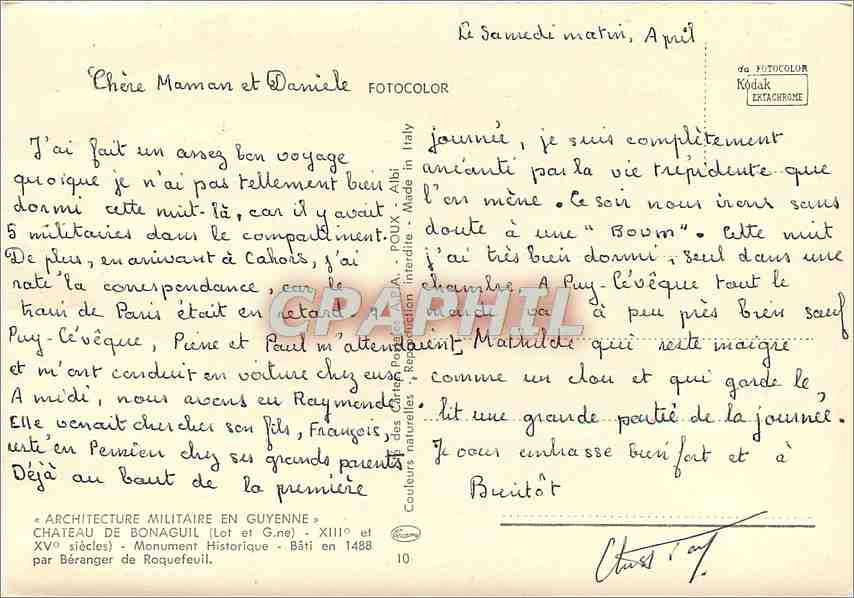 Le Samedi matin, April
Chère Maman et Danièle
FOTOCOLOR
da FOTOCOLOR
Kodak
EKTACHROME
J'ai fait un assez bon voyage
quoique je n'ai pas tellement bien
dormi cette nuit-là, car il y avait
5 militaires dans le compartiment.
De plus, en arrivant à Cahors, j'ai
raté la correspondance, car le
train de Paris était en retard. A
Puy-L'évêque, Pierre et Paul m'attendaient
et m'ont conduit en voiture chez eux.
A midi, nous avons eu Raymonde.
Elle venait chercher son fils, François,
resté en Pension chez ses grands parents
Déjà au bout de la première
journée, je suis complètement
anéanti par la vie trépidente que
l'on mène. Ce soir nous irons sans
doute à une "Boum". Cette nuit
j'ai très bien dormi, seul dans une
chambre. A Puy-L'évêque tout le
monde va à peu près bien sauf
Mathilde qui reste maigre
comme un clou et qui garde le
lit une grande partie de la journée.
Je vous embrasse bien fort et à
Bientôt
des Cartes Postales A.P.A. POUX - Albi
Couleurs naturelles - Reproduction interdite - Made in Italy
CPAPHIL
« ARCHITECTURE MILITAIRE EN GUYENNE »
CHATEAU DE BONAGUIL (Lot et G.ne) - XIIIº et
XVº siècles) - Monument Historique - Bâti en 1488
par Béranger de Roquefeuil.
10